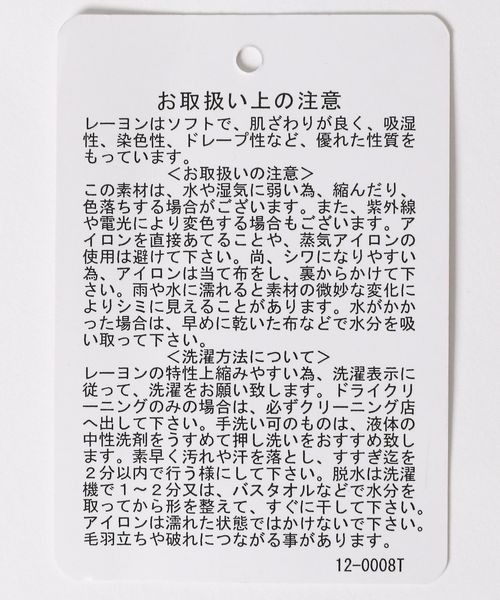 お取扱い上の注意
レーヨンはソフトで、肌ざわりが良く、吸湿
性、染色性、ドレープ性など、優れた性質を
もっています。
＜お取扱いの注意＞
この素材は、水や湿気に弱い為、縮んだり、
色落ちする場合がございます。また、紫外線
や電光により変色する場合もございます。ア
イロンを直接あてることや、蒸気アイロンの
使用は避けて下さい。尚、シワになりやすい
為、アイロンは当て布をし、裏からかけて下
さい。雨や水に濡れると素材の微妙な変化に
よりシミに見えることがあります。水がかか
った場合は、早めに乾いた布などで水分を吸
い取って下さい。
＜洗濯方法について＞
レーヨンの特性上縮みやすい為、洗濯表示に
従って、洗濯をお願い致します。ドライクリ
ーニングのみの場合は、必ずクリーニング店
へ出して下さい。手洗い可のものは、液体の
中性洗剤をうすめて押し洗いをおすすめ致し
ます。素早く汚れや汗を落とし、すすぎ迄を
２分以内で行う様にして下さい。脱水は洗濯
機で１～２分又は、バスタオルなどで水分を
取ってから形を整えて、すぐに干して下さい。
アイロンは濡れた状態ではかけないで下さい。
毛羽立ちや破れにつながる事があります。
12-0008T